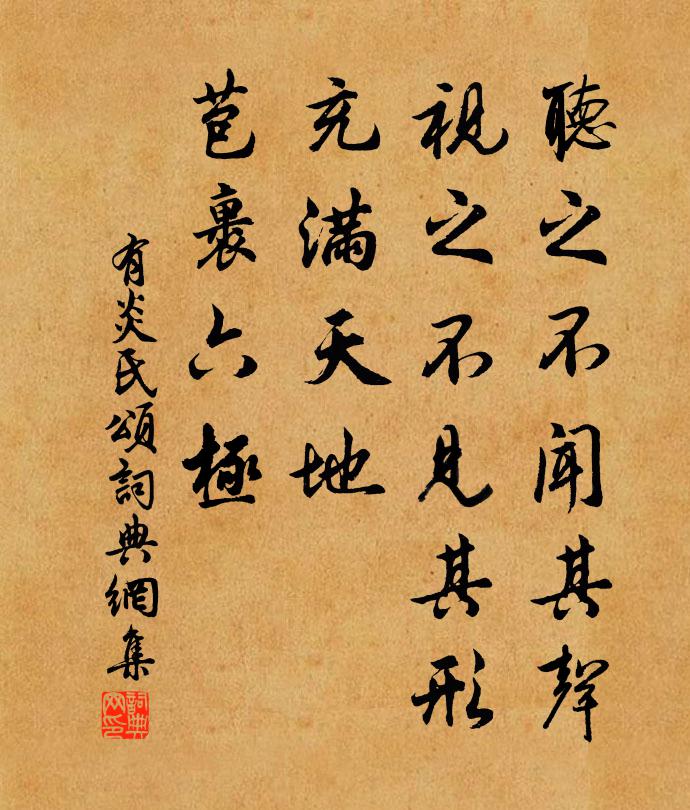 聽之不聞其聲
視之不見其形
充滿天地
苞裹六極
有炎氏頌詞典網集
詞典网印